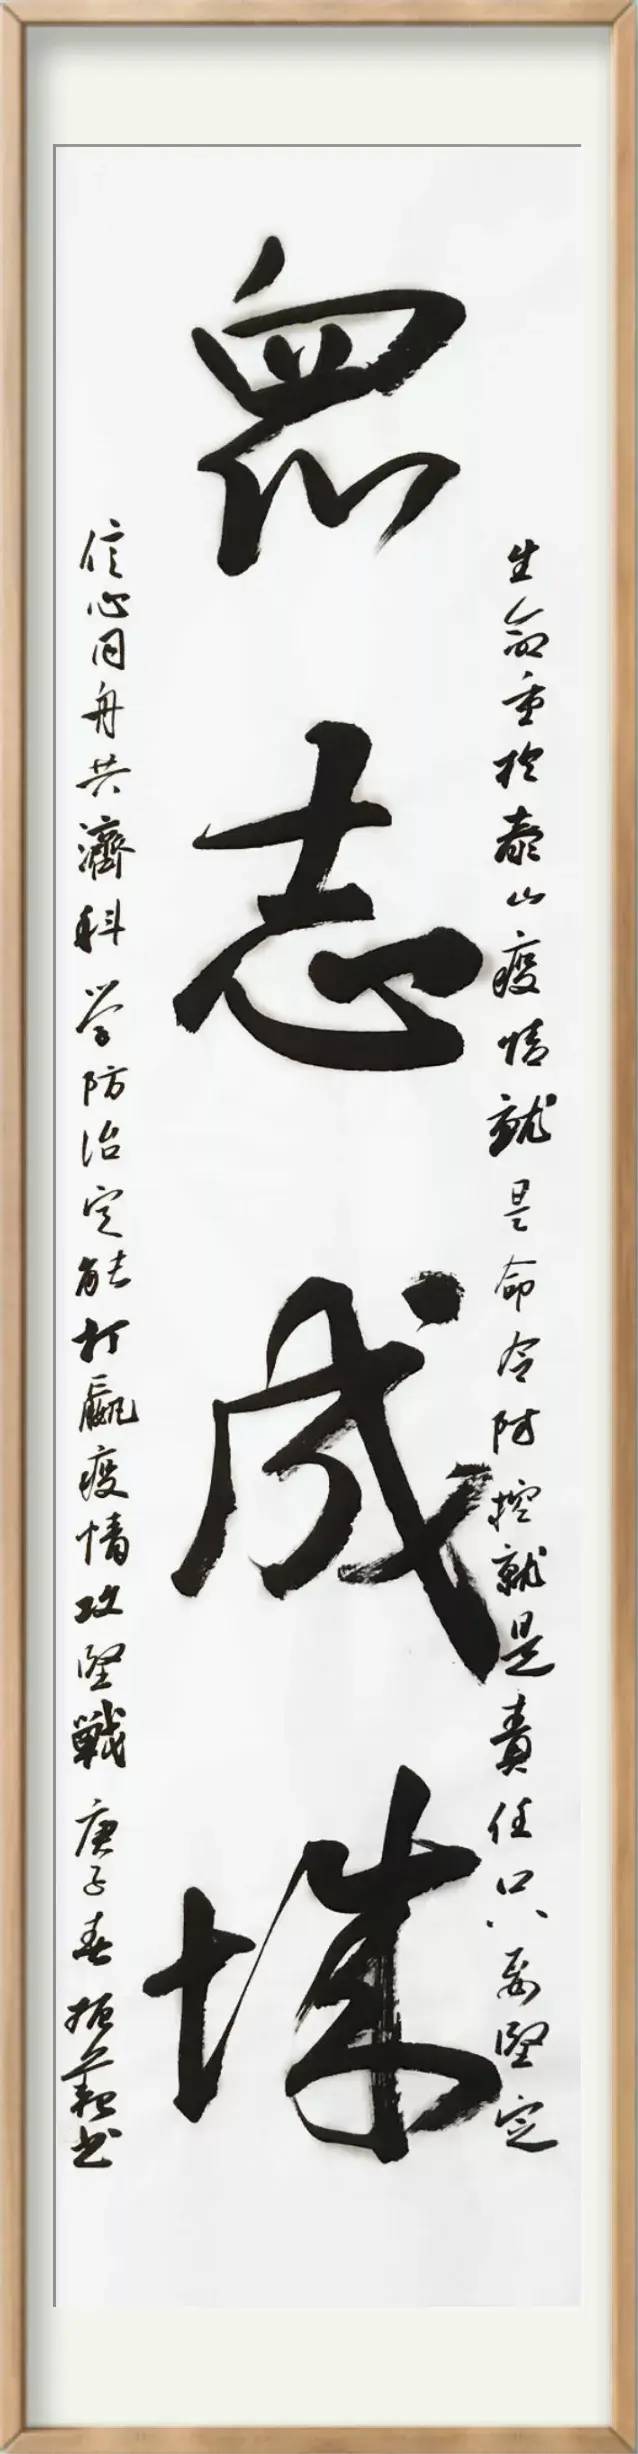 衆志成城
生命重於泰山疫情就是命令防控就是責任只要堅定
信心同舟共濟科学防治定能打贏疫情攻堅戰 庚子春 振书